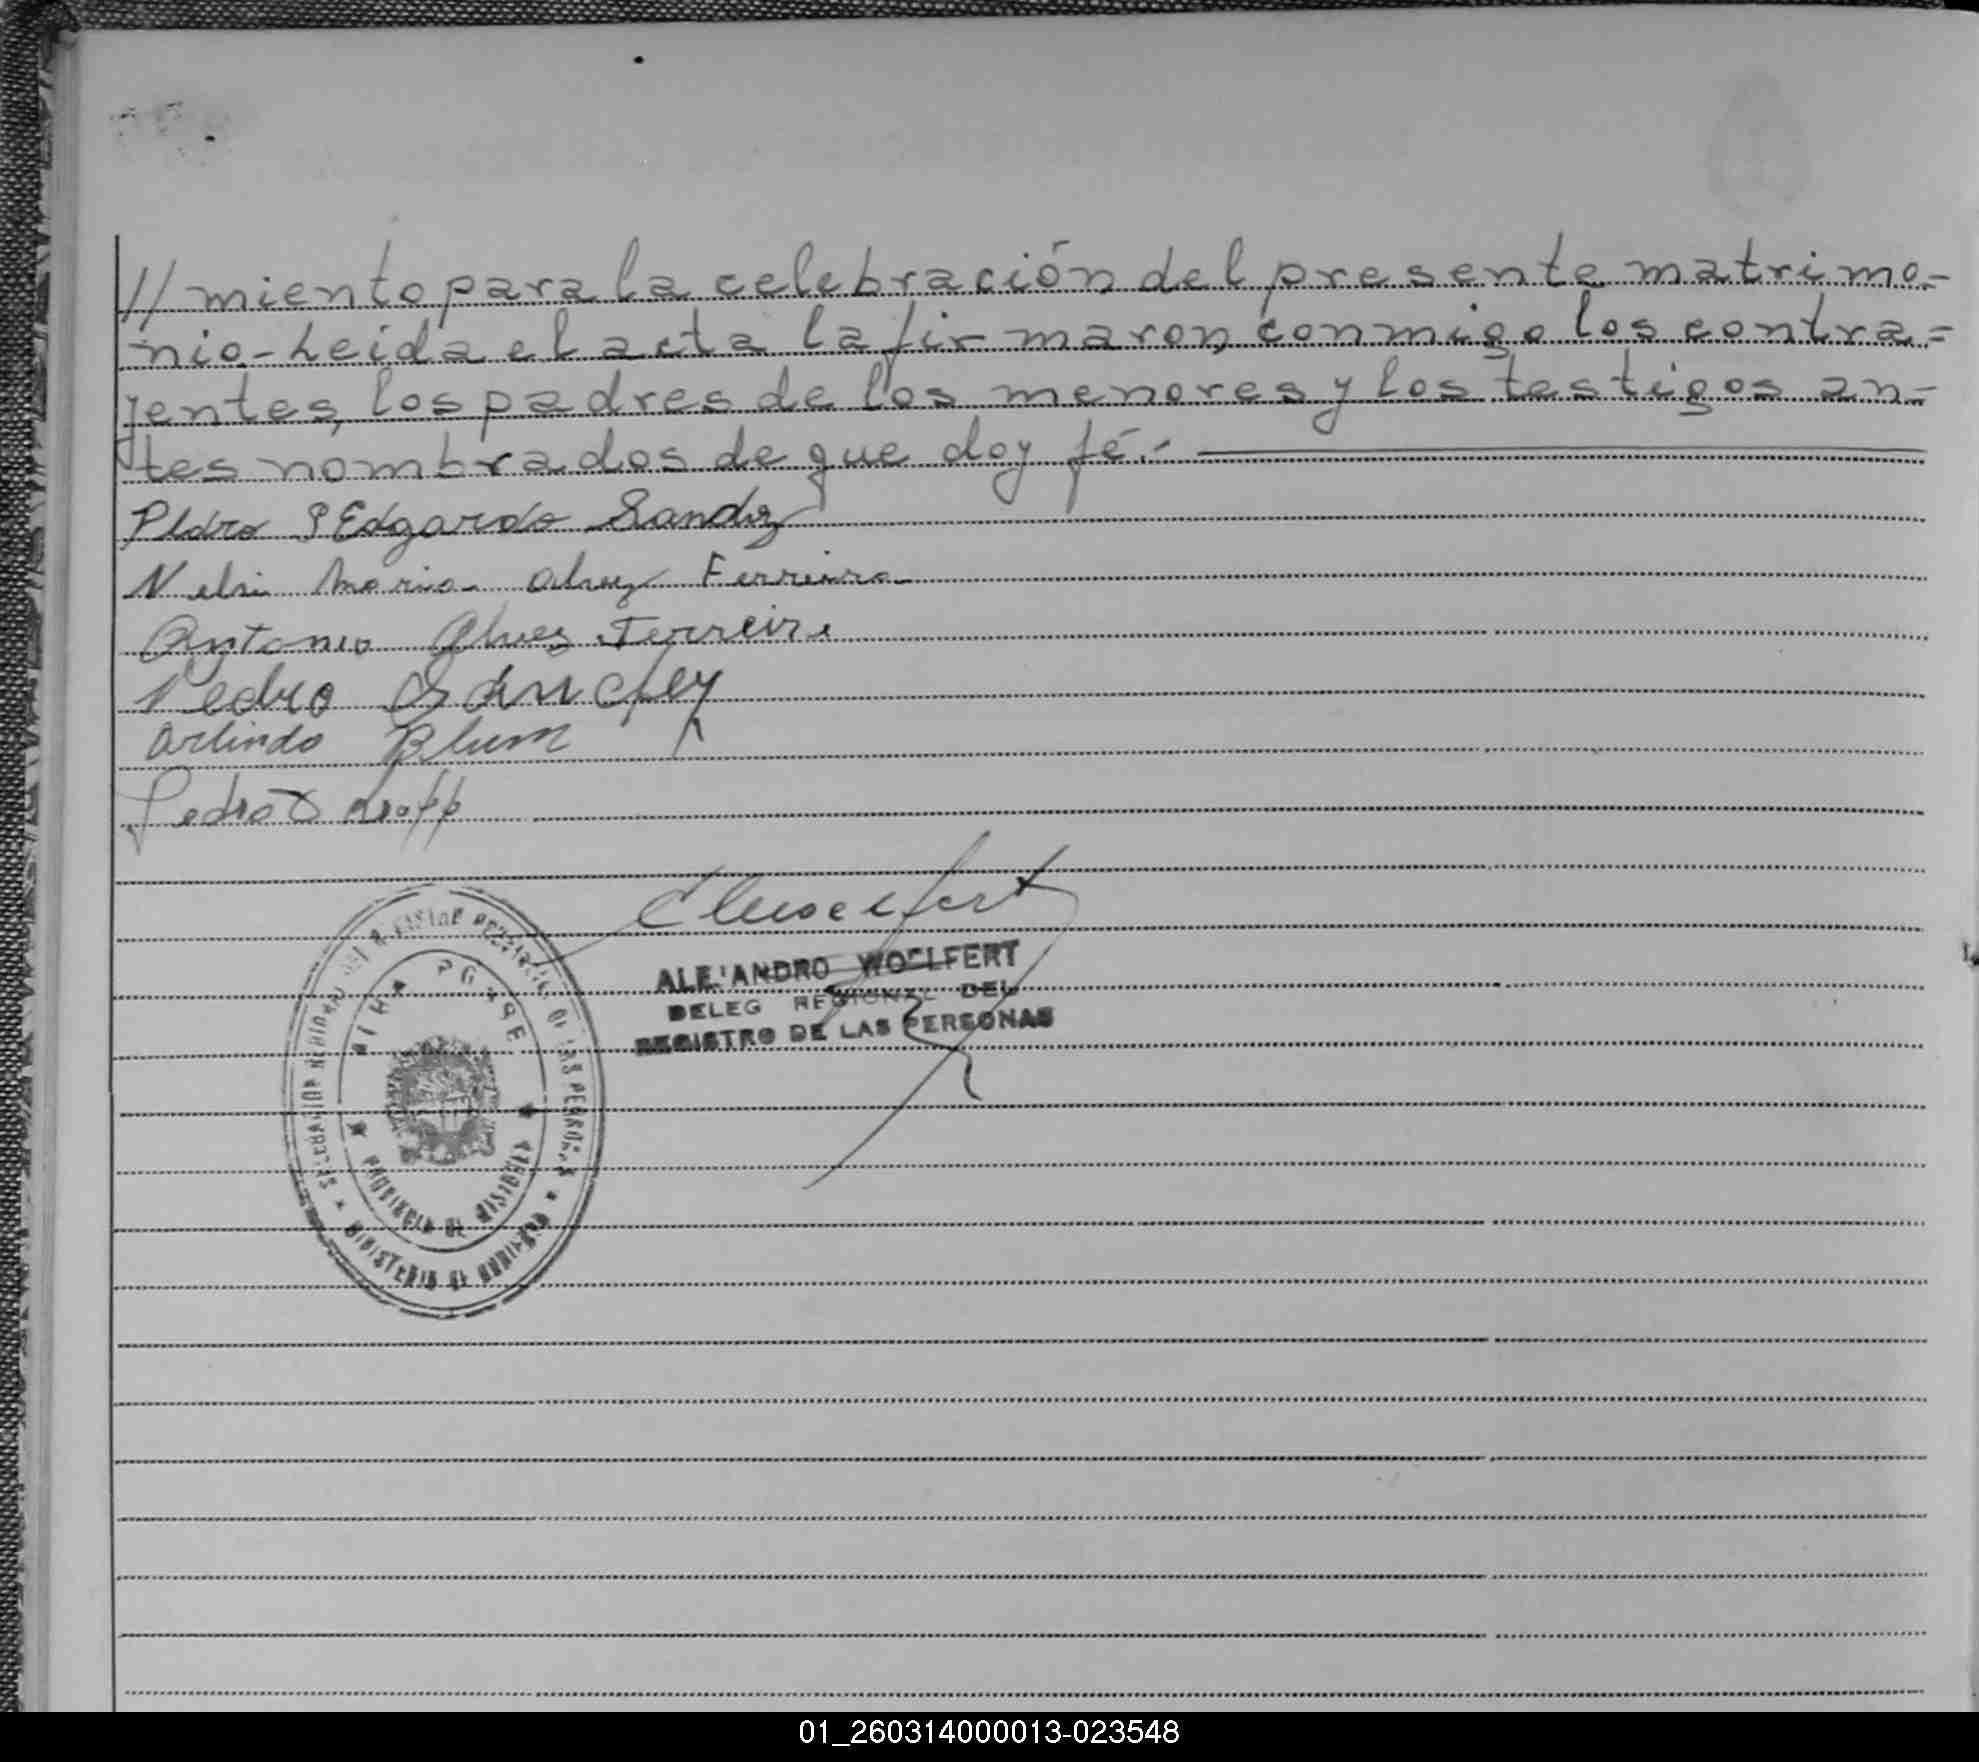 // miento para la celebración del presente matrimo-
nio-Leida el acta la firmaron, conmigo los contra=
yentes, los padres de los menores y los testigos an-
tes nombrados de que doy fé.-
Pedro Edgardo
Nelsi Maria Alvez Ferreira
Antonio Alves Ferreira
Pedro Sanchez
Arlindo Blum
Pedro
ALEJANDRO WOELFERT
DELEG REGIONAL DEL
REGISTRO DE LAS PERSONAS
DE LAS PERSONAS
PROVINCIA DE MISIONES
MINISTERIO DE GOBIERNO
01_260314000013-023548